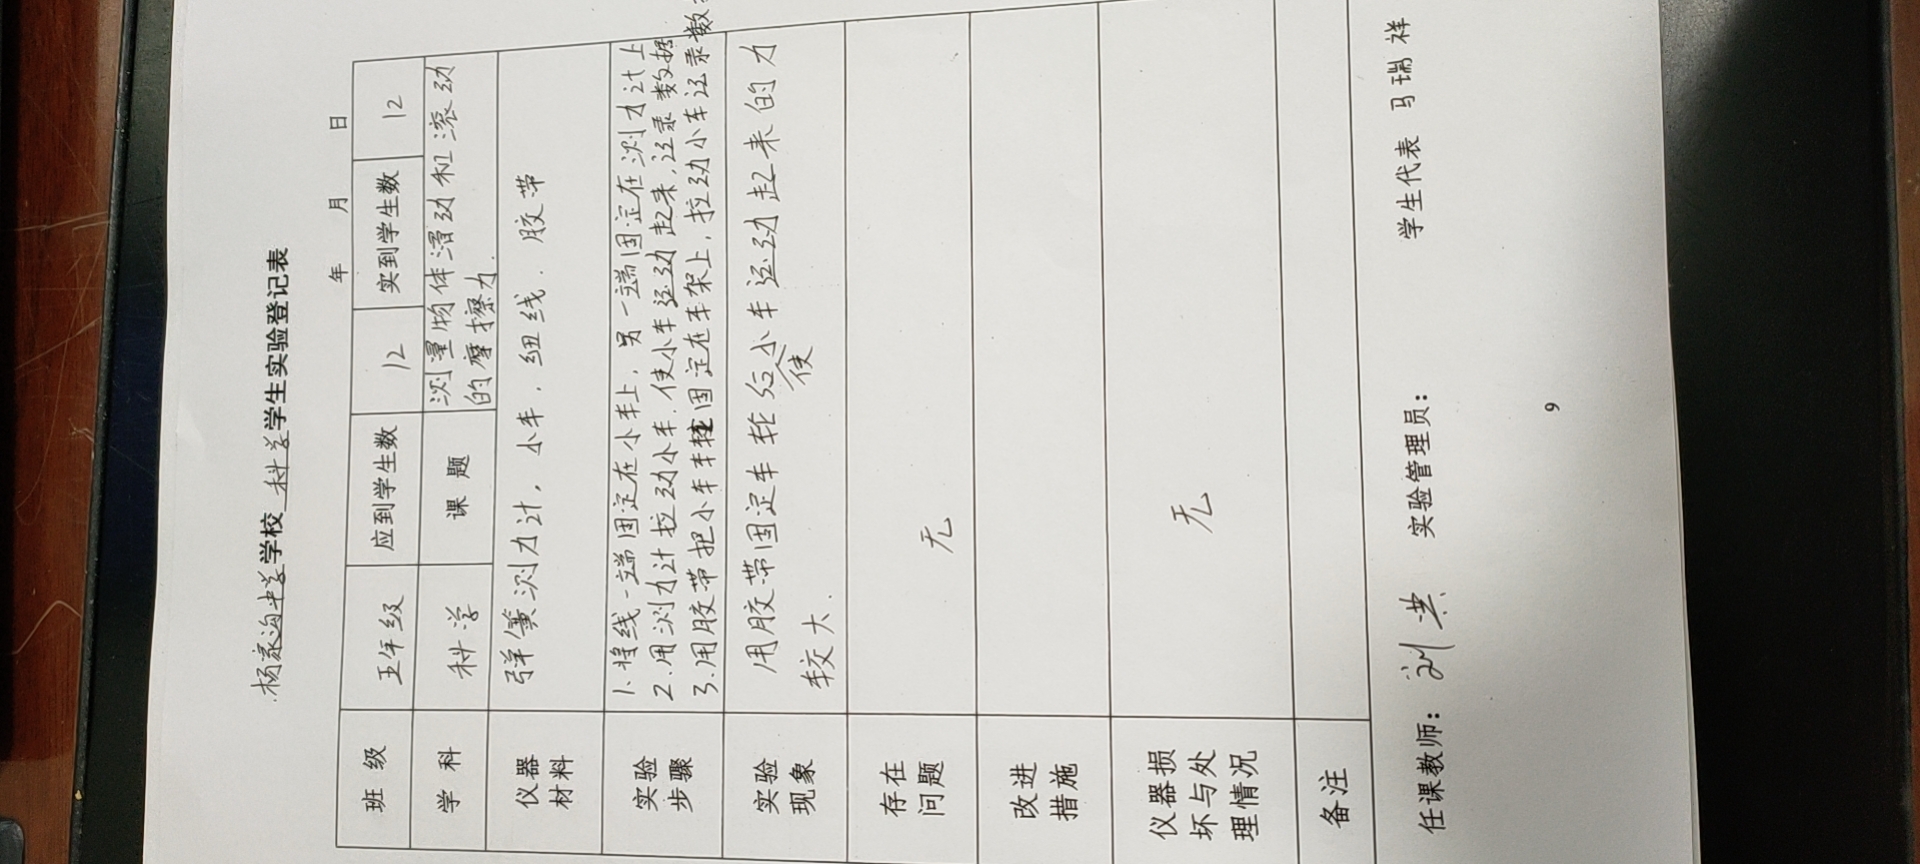 杨家沟中学学校 科学学生实验登记表
年 月 日
班 级 五年级 应到学生数 12 实到学生数 12
学 科 科学 课 题 测量物体滑动和滚动
的摩擦力.
仪器
材料 弹簧测力计, 小车, 细线. 胶带
实验
步骤 1.将线一端固定在小车上, 另一端固定在测力计上
2.用测力计拉动小车.使小车运动起来,记录数据
3.用胶带把小车车固定在车架上, 拉动小车记录数
实验
现象 用胶带固定车轮后小车运动起来的力
使
较大.
存在
问题 无
改进
措施
仪器损
坏与处
理情况 无
备注
任课教师: 实验管理员: 学生代表 马瑞祥
9